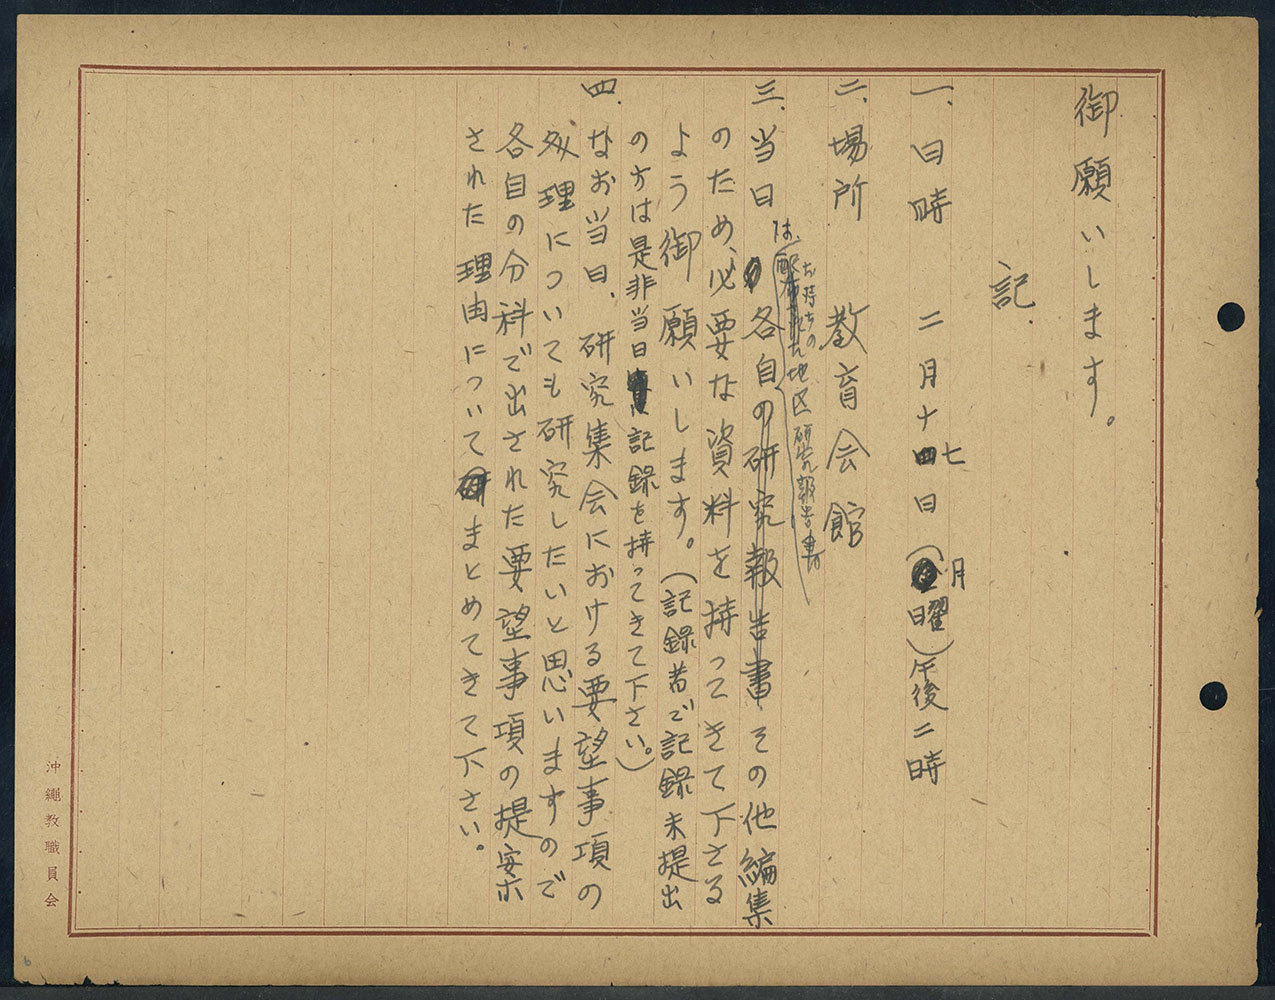 御願いします。
記
一、日時　二月十七日（月曜）午後二時
二、場所　教育会館
お持ちの
は、地区研究報告書
三、当日各自の研究報告書その他編集
のため、必要な資料を持ってきて下さる
よう御願いします。（記録者で記録未提出
の方は是非当日記録を持ってきて下さい。）
四、なお当日、研究集会における要望事項の
処理についても研究したいと思いますので
各自の分科で出された要望事項の提案
された理由についてまとめてきて下さい。
沖繩教職員会
6